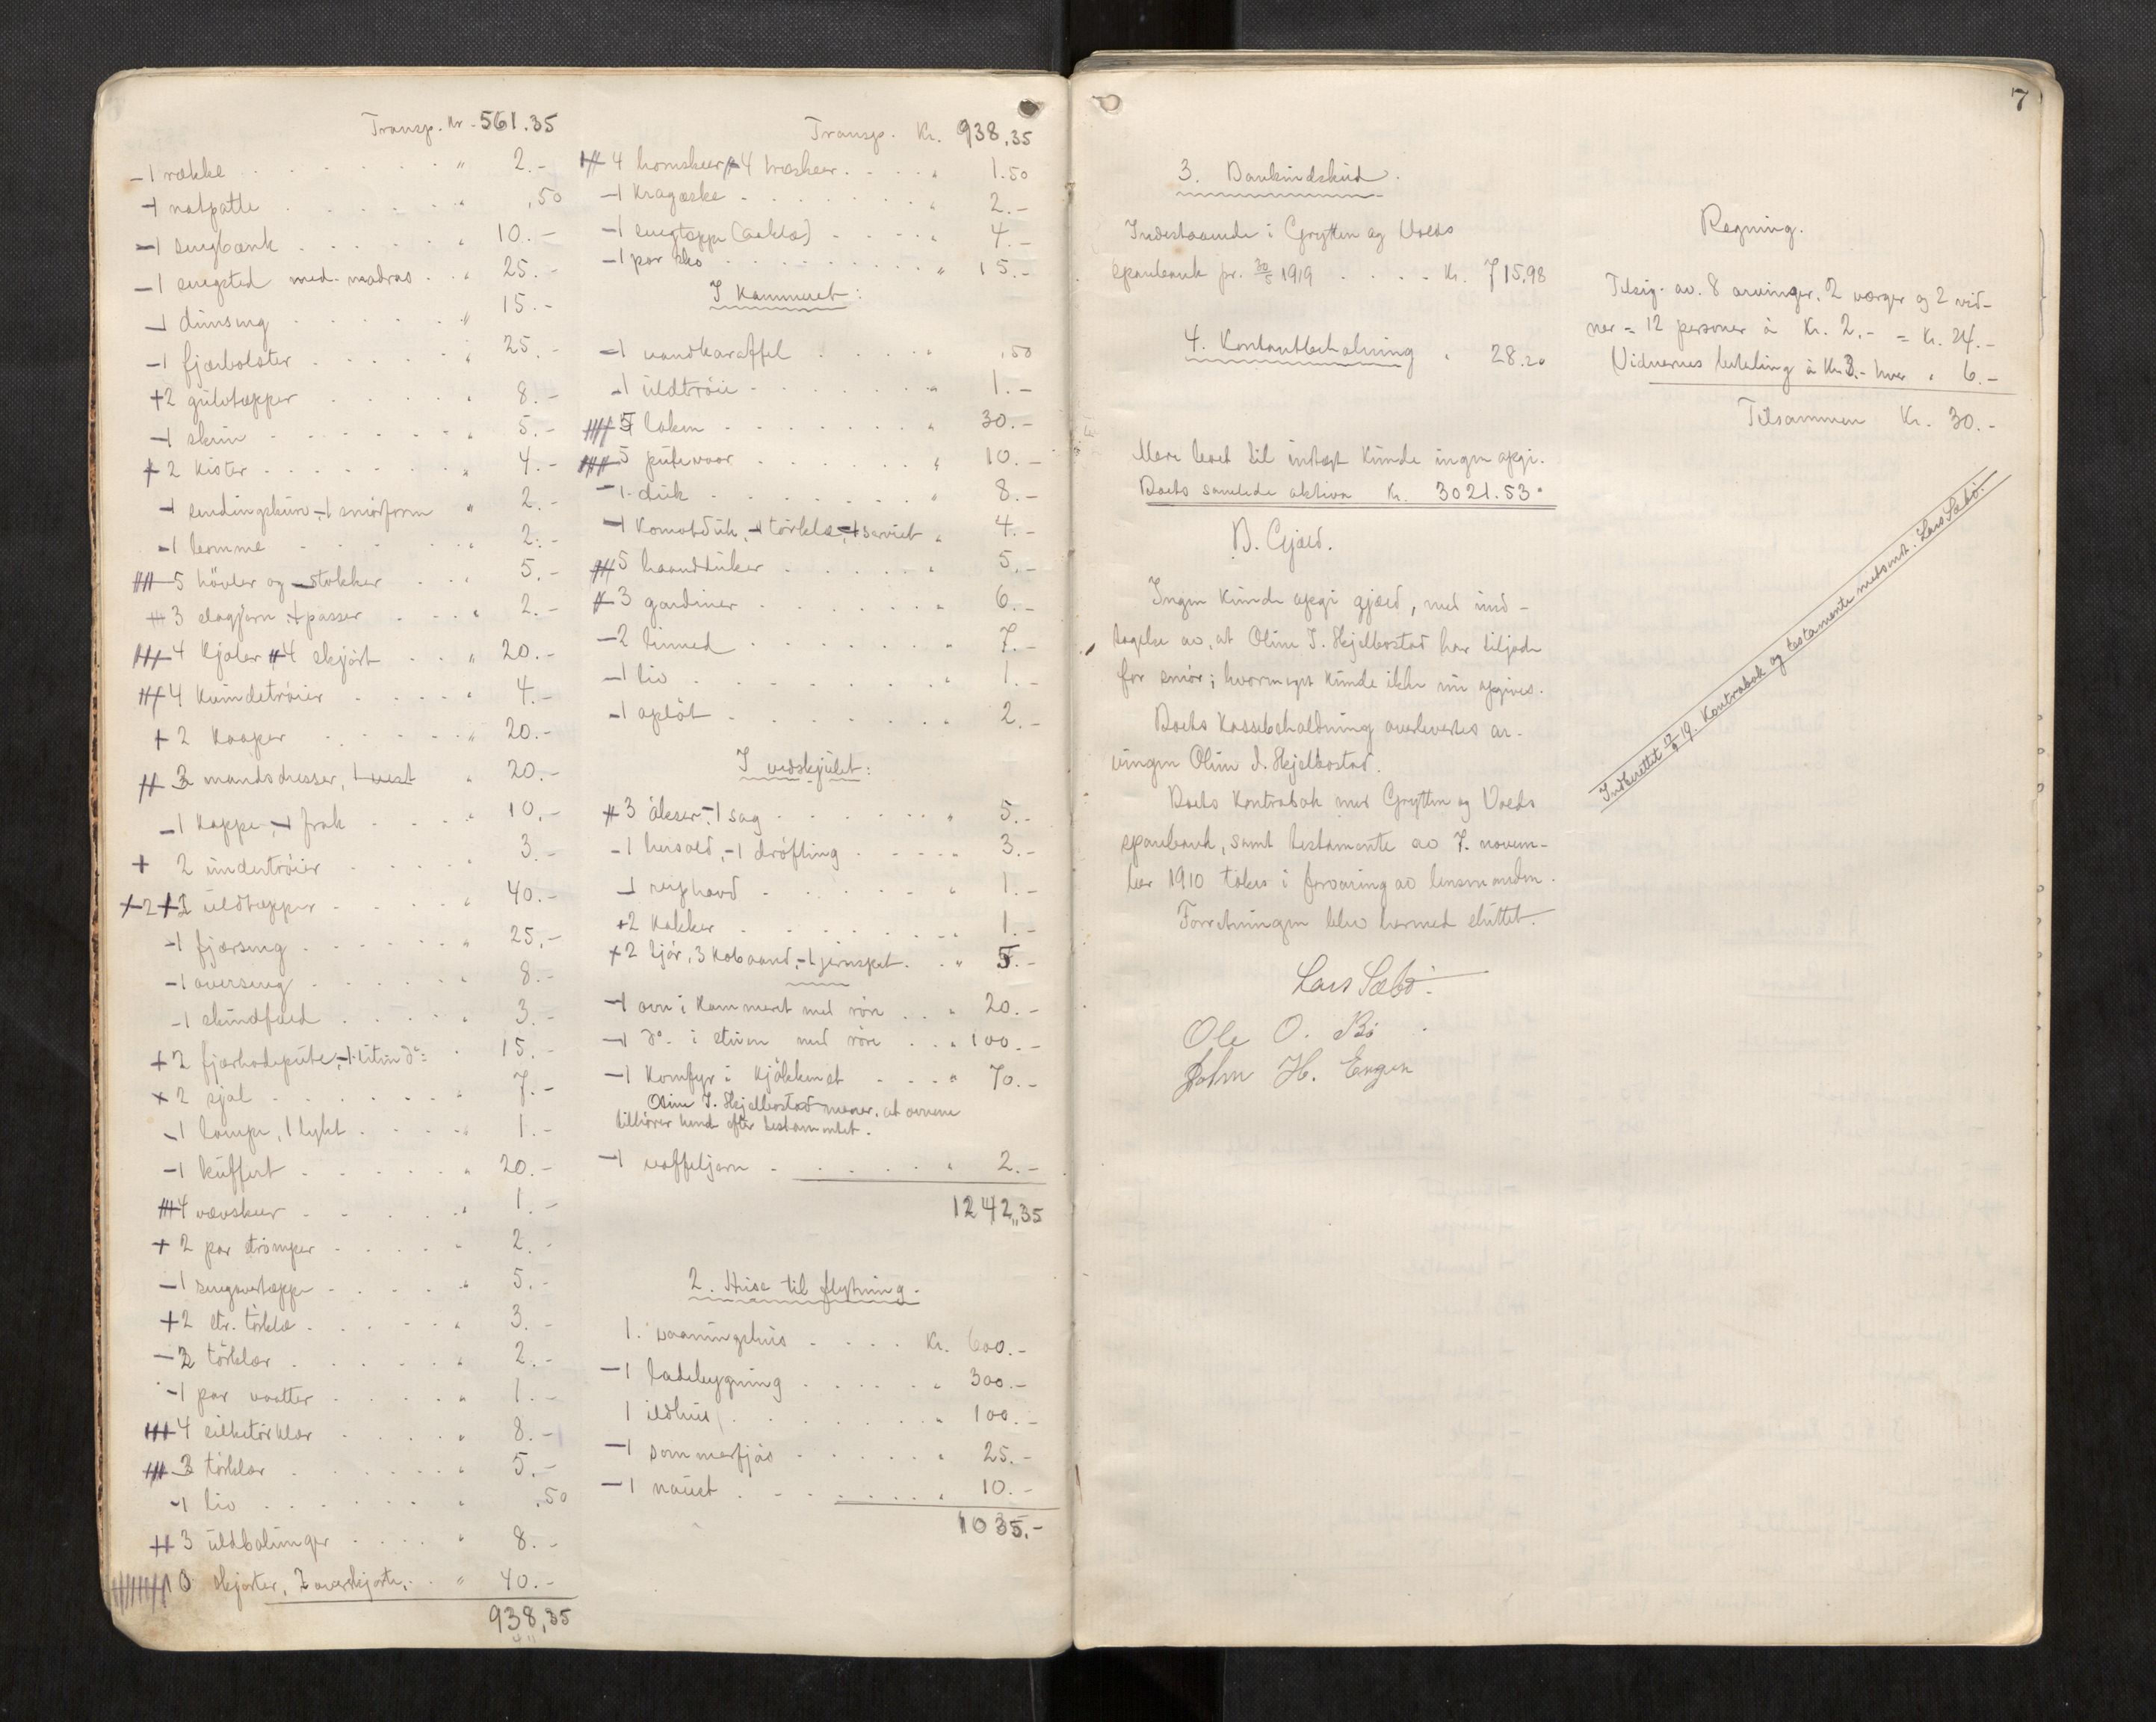 Transp. Kr. 561.35
-1 rokke . . . . . " 2.-
-1 notpotte . . . . . " ,50
-1 sengbænk . . . . . " 10.-
-1 sengsted med madras . . " 25.-
-1 dunseng . . . . . " 15.-
-1 fjærbolster . . . . . " 25.-
+2 gulvtæpper . . . . . " 8.-
-1 skrin . . . . . " 5.-
+2 kister . . . . . " 4.-
-1 sendingskurv, -1 smörform " 2.-
-1 komme . . . . . " 2.-
5 hövler og stokker . . . " 5.-
3 slagjern + passer . . . " 2.-
4 kjoler 4 skjört . . . " 20.-
4 kvindetröier . . . . " 4.-
+2 kaaper . . . . . " 20.-
mandsdresser, 1 vest " 20.-
-1 kappe, -1 frak . . . . " 10.-
+2 undertröier . . . . " 3.-
uldtæpper . . . . " 40.-
-1 fjærseng . . . . . " 25.-
-1 overseng . . . . . " 8.-
-1 skindfæld . . . . . " 3.-
+2 fjærhodepute, -1 liten do= . 15.-
+2 sjal . . . . . " 7.-
-1 lampe, 1 lykt . . . . " 1.-
-1 kuffert . . . . . " 20.-
4 vævskeer . . . . . " 1.-
+2 par strömper . . . . " 2.-
-1 sengovertæppe . . . . " 5.-
+2 str. törklæ . . . . . " 3.-
törklær . . . . . " 2.-
-1 par vaatter . . . . " 1.-
4 silketörklær . . . . " 8.-
3 törklær . . . . . " 5.-
-1 liv . . . . . " ,50
3 uldbolinger . . . . " 8.-
skjorter, 2 overskjorte . . " 40.-
938,35
Transp. Kr. 938,35
4 hornskeer 4 træskeer . . . . " 1.50
-1 kragæske . . . . . . " 2.-
-1 sengtæppe (aaklæ) . . . . " 4.-
-1 par sko . . . . . . " 15.-
I Kammeret:
-1 vandkaraffel . . . . " ,50
-1 uldtröie . . . . . . " 1.-
5 laken . . . . . . " 30.-
5 putevaar . . . . . . " 10.-
-1 duk . . . . . . " 8.-
-1 Komodduk, -1 törklæ, -1 serviet " 4.-
5 haandduker . . . . . " 5.-
3 gardiner . . . . . . " 6.-
-2 linned . . . . . . " 7.-
-1 liv . . . . . . " 1.-
-1 opslöt . . . . . . " 2.-
I vedskjulet:
3 ökser, -1 sag . . . . . " 5.-
-1 hersald, -1 dröfting . . . . " 3.-
-1 reiphavd . . . . . . " 1.-
+2 hakker . . . . . . " 1.-
+2 ljör, 3 kobaand, -1 jernspet . . " 5.-
-1 ovn i kammeret med röre . . " 20.-
-1 do. i stuen med röre . . " 100.-
-1 Komfyr i Kjökkenet . . . " 70.-
Oline I. Hjelbostad mener, at ovnene
tilhörer hende efter testamentet.
-1 vaffeljern . . . . . . " 2.-
1242,35
2. Huse til flytning.
1. vaaningshus . . . . Kr. 600.-
-1 ladebygning . . . . . " 300.-
1 ildhus . . . . . . " 100.-
-1 sommerfjös . . . . . " 25.-
-1 naust . . . . . . " 10.-
1035.-
7
3. Bankindskud.
Indestaaende i Grytten og Voldo
sparebank pr. 30/5 1919 . . . . Kr. 715,98
4. Kontantbeholdning " 28.20
Mere boet til indtægt kunde ingen opgi.
Boets samlede aktiva Kr. 3021.53.
B. Gjæld.
Ingen kunde opgi gjæld, med und-
tagelse av, at Oline I. Hjelbostad har tilgode
for smör; hvormeget kunde ikke nu opgives.
Boets kassebeholdning overlevertes ar-
vingen Oline I. Hjelbostad.
Boets kontrabok med Grytten og Voldo
sparebank, samt testamente av 7. novem-
ber 1910 tokes i forvaring av lensmanden.
Forretningen blev hermed sluttet.
Lars Sæbö.
Ole O. Bö
John H. Engen
Regning.
Tilsig. av. 8 arvinger, 2 værger og 2 vid-
ner = 12 personer à Kr. 2.- = Kr. 24.-
Vidnernes betaling à Kr. 3.- hver " 6.-
Tilsammen Kr. 30.-
Indberettet 17/9 19. Kontrabok og testamente medsendt. Lars Sæbö.